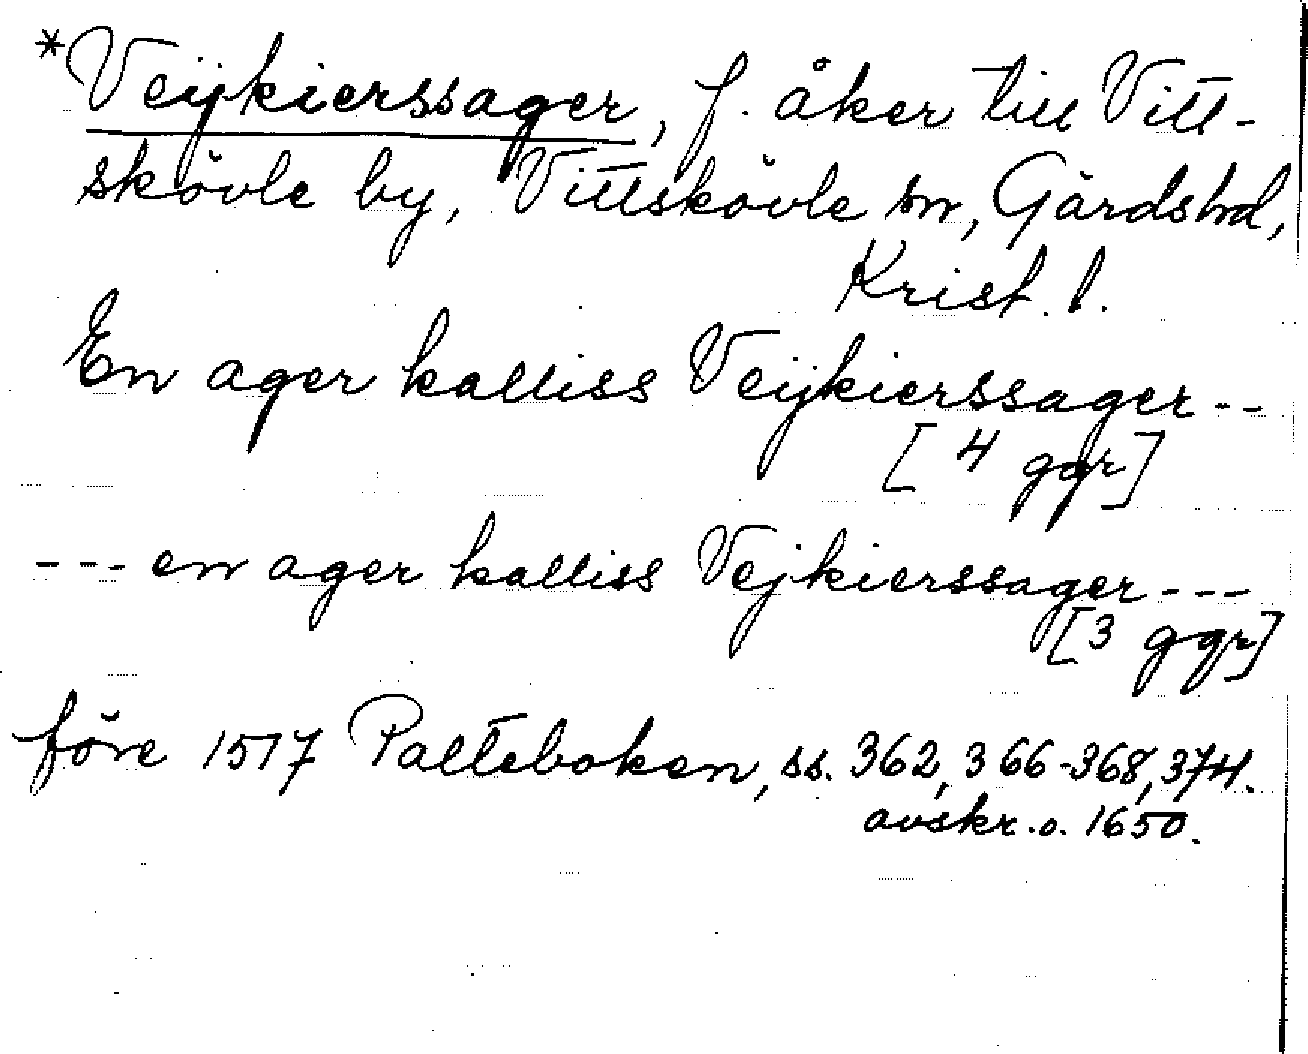 *Veijkierssager, f. åker till Vitt-
skövle by, Vittskövle sn, Gärds hd,
Krist. l.
En ager kalliss Veijkierssager --
[4 ggr]
--- en ager kalliss Vejkierssager ---
[3 ggr]
före 1517 Palteboken, ss. 362, 366-368, 374.
avskr. o. 1650.